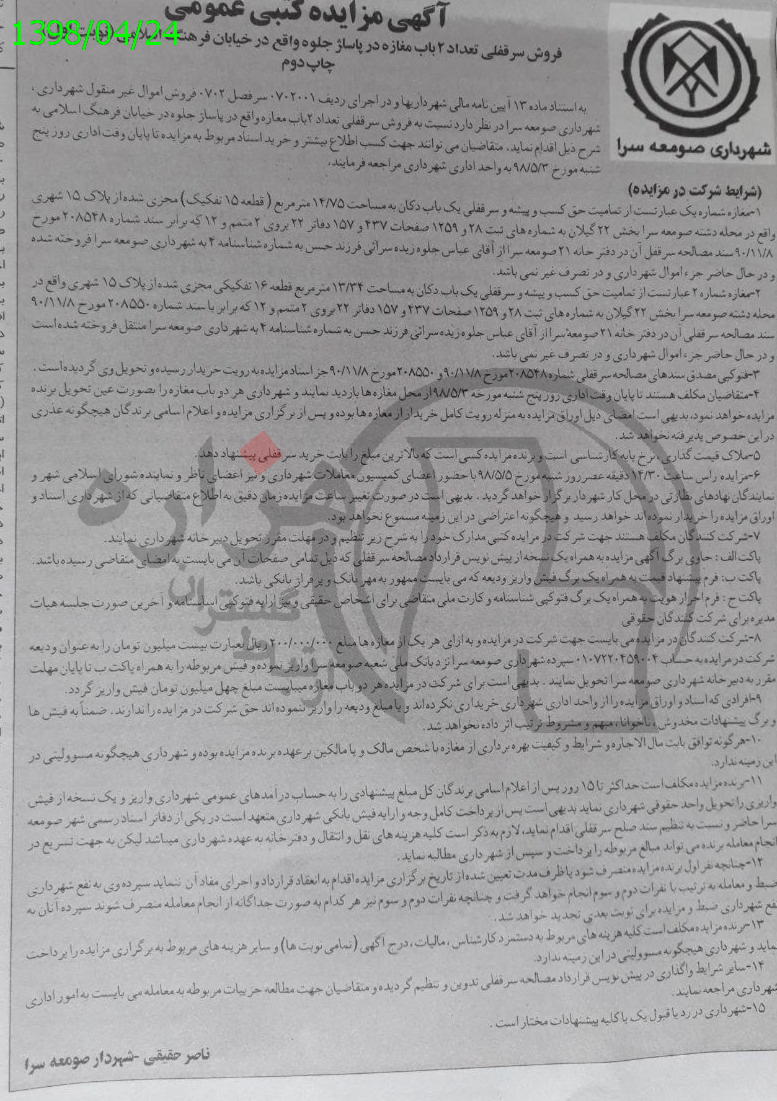 آگهی مزایده کتبی عمومی
1398/04/24
فروش سرقفلی تعداد ۲ باب مغازه در پاساژ جلوه واقع در خیابان فرهنگ اسلامی (نوبت اول)
چاپ دوم
شهرداری صومعه سرا
به استناد ماده ۱۳ آیین نامه مالی شهرداریها و در اجرای ردیف ۰۷۰۲۰۰۱ سرفصل ۰۷۰۲ فروش اموال غیر منقول شهرداری،
شهرداری صومعه سرا در نظر دارد نسبت به فروش سرقفلی تعداد ۲ باب مغازه واقع در پاساژ جلوه در خیابان فرهنگ اسلامی به
شرح ذیل اقدام نماید. متقاضیان می توانند جهت کسب اطلاع بیشتر و خرید اسناد مربوط به مزایده تا پایان وقت اداری روز پنج
شنبه مورخ ۹۸/۵/۳ به واحد اداری شهرداری مراجعه فرمایند.
(شرایط شرکت در مزایده)
۱-مغازه شماره یک عبارتست از تمامیت حق کسب و پیشه و سرقفلی یک باب دکان به مساحت ۱۴/۷۵ متر مربع ( قطعه ۱۵ تفکیک) مجزی شده از پلاک ۱۵ شهری
واقع در محله دشته صومعه سرا بخش ۲۲ گیلان به شماره های ثبت ۲۸ و ۱۲۵۹ صفحات ۴۳۷ و ۱۵۷ دفاتر ۲۲ بروی ۲ متمم و ۱۲ که برابر سند شماره ۲۰۸۵۴۸ مورخ
۹۰/۱۱/۸ سند مصالحه سرقفل آن در دفتر خانه ۲۱ صومعه سرا از آقای عباس جلوه زیده سرائی فرزند حسن به شماره شناسنامه ۴ به شهرداری صومعه سرا فروخته شده
و در حال حاضر جزء اموال شهرداری و در تصرف غیر نمی باشد.
۲-مغازه شماره ۲ عبارتست از تمامیت حق کسب و پیشه و سرقفلی یک باب دکان به مساحت ۱۳/۳۴ متر مربع قطعه ۱۶ تفکیکی مجزی شده از پلاک ۱۵ شهری واقع در
محله دشته صومعه سرا بخش ۲۲ گیلان به شماره های ثبت ۲۸ و ۱۲۵۹ صفحات ۲۳۷ و ۱۵۷ دفاتر ۲۲ بروی ۲ متمم و ۱۲ که برابر با سند شماره ۲۰۸۵۵۰ مورخ ۹۰/۱۱/۸
سند مصالحه سرقفلی آن در دفتر خانه ۲۱ صومعه سرا از آقای عباس جلوه زیده سرائی فرزند حسن به شماره شناسنامه ۴ به شهرداری صومعه سرا منتقل فروخته شده است
و در حال حاضر جزء اموال شهرداری و در تصرف غیر نمی باشد.
۳-فتوکپی مصدق سندهای مصالحه سرقفلی شماره ۲۰۸۵۴۸ مورخ ۹۰/۱۱/۸ و ۲۰۸۵۵۰ مورخ ۹۰/۱۱/۸ جز اسناد مزایده به رویت خریدار رسیده و تحویل وی گردیده است.
۴-متقاضیان مکلف هستند تا پایان وقت اداری روز پنج شنبه مورخه ۹۸/۵/۳ از محل مغازه ها بازدید نمایند و شهرداری هر دو باب مغازه را بصورت عین تحویل برنده
مزایده خواهد نمود، بدیهی است امضای ذیل اوراق مزایده به منزله رویت کامل خریدار از مغازه ها بوده و پس از برگزاری مزایده و اعلام اسامی برندگان هیچگونه عذری
در این خصوص پذیرفته نخواهد شد.
۵-ملاک قیمت گذاری، نرخ پایه کارشناسی است و برنده مزایده کسی است که بالاترین مبلغ را بابت خرید سرقفلی پیشنهاد دهد.
۶-مزایده راس ساعت ۱۴/۳۰ دقیقه عصر روز شنبه مورخ ۹۸/۵/۵ با حضور اعضای کمیسیون معاملات شهرداری و نیز اعضای ناظر و نماینده شورای اسلامی شهر و
نمایندگان نهادهای نظارتی در محل کار شهردار برگزار خواهد گردید . بدیهی است در صورت تغییر ساعت مزایده زمان دقیق به اطلاع متقاضیانی که از شهرداری اسناد و
اوراق مزایده را خریدار نموده اند خواهد رسید و هیچگونه اعتراضی در این زمینه مسموع نخواهد بود.
۷-شرکت کنندگان مکلف هستند جهت شرکت در مزایده کتبی مدارک خود را به شرح زیر تنظیم و در مهلت مقرر تحویل دبیر خانه شهرداری نمایند.
پاکت الف : حاوی برگ آگهی مزایده به همراه یک نسخه از پیش نویس قرارداد مصالحه سرقفلی که ذیل تمامی صفحات آن می بایست به امضای متقاضی رسیده باشد.
پاکت ب: فرم پیشنهاد قیمت به همراه یک برگ فیش واریز ودیعه که می بایست ممهور به مهر بانک و پرفراژ بانکی باشد.
پاکت ج : فرم احراز هویت به همراه یک برگ فتوکپی شناسنامه و کارت ملی متقاضی برای اشخاص حقیقی و نیز ارایه فتوکپی اساسنامه و آخرین صورت جلسه هیات
مدیره برای شرکت کنندگان حقوقی
۸-شرکت کنندگان در مزایده می بایست جهت شرکت در مزایده و به ازای هر یک از مغازه ها مبلغ ۲۰۰/۰۰۰/۰۰۰ ریال بعبارت بیست میلیون تومان را به عنوان ودیعه
شرکت در مزایده به حساب ۰۱۰۷۲۲۰۴۵۹۰۰۴ سپرده شهرداری صومعه سرا نزد بانک ملی شعبه صومعه سرا واریز نموده و فیش مربوطه را به همراه پاکت ب تا پایان مهلت
مقرر به دبیر خانه شهرداری صومعه سرا تحویل نمایند . بدیهی است برای شرکت در مزایده هر دو باب مغازه میبایست مبلغ چهل میلیون تومان فیش واریز گردد.
۹-افرادی که اسناد و اوراق مزایده را از واحد اداری شهرداری خریداری نکرده اند و یا مبلغ ودیعه را واریز ننموده اند حق شرکت در مزایده را ندارند. ضمناً به فیش ها
و برگ پیشنهادات مخدوش، ناخوانا، مبهم و مشروط ترتیب اثر داده نخواهد شد.
۱۰-هرگونه توافق بابت مال الاجاره و شرایط و کیفیت بهره برداری از مغازه با شخص مالک و یا مالکین بر عهده برنده مزایده بوده و شهرداری هیچگونه مسوولیتی در
این زمینه ندارد.
۱۱-برنده مزایده مکلف است حداکثر تا ۱۵ روز پس از اعلام اسامی برندگان کل مبلغ پیشنهادی را به حساب درآمدهای عمومی شهرداری واریز و یک نسخه از فیش
واریزی را تحویل واحد حقوقی شهرداری نماید بدیهی است پس از پرداخت کامل وجه و ارایه فیش بانکی شهرداری متعهد است در یکی از دفاتر اسناد رسمی شهر صومعه
سرا حاضر و نسبت به تنظیم سند صلح سرقفلی اقدام نماید، لازم به ذکر است کلیه هزینه های نقل و انتقال و دفتر خانه به عهده شهرداری میباشد لیکن به جهت تسریع در
انجام معامله برنده می تواند مبالغ مربوطه را پرداخت و سپس از شهرداری مطالبه نماید.
۱۲-چنانچه نفر اول برنده مزایده منصرف شود یا ظرف مدت تعیین شده از تاریخ برگزاری مزایده اقدام به انعقاد قرارداد و اجرای مفاد آن ننماید سپرده وی به نفع شهرداری
ضبط و معامله به ترتیب با نفرات دوم و سوم انجام خواهد گرفت و چنانچه نفرات دوم و سوم نیز هر کدام به صورت جداگانه از انجام معامله منصرف شوند سپرده آنان به
نفع شهرداری ضبط و مزایده برای نوبت بعدی تجدید خواهد شد.
۱۳-برنده مزایده مکلف است کلیه هزینه های مربوط به دستمزد کارشناس، مالیات، درج آگهی (تمامی نوبت ها) و سایر هزینه های مربوط به برگزاری مزایده را پرداخت
نماید و شهرداری هیچگونه مسوولیتی در این زمینه ندارد.
۱۴-سایر شرایط واگذاری در پیش نویس قرارداد مصالحه سرقفلی تدوین و تنظیم گردیده و متقاضیان جهت مطالعه جزییات مربوطه به معامله می بایست به امور اداری
شهرداری مراجعه نمایند.
۱۵-شهرداری در رد یا قبول یک یا کلیه پیشنهادات مختار است .
ناصر حقیقی -شهردار صومعه سرا